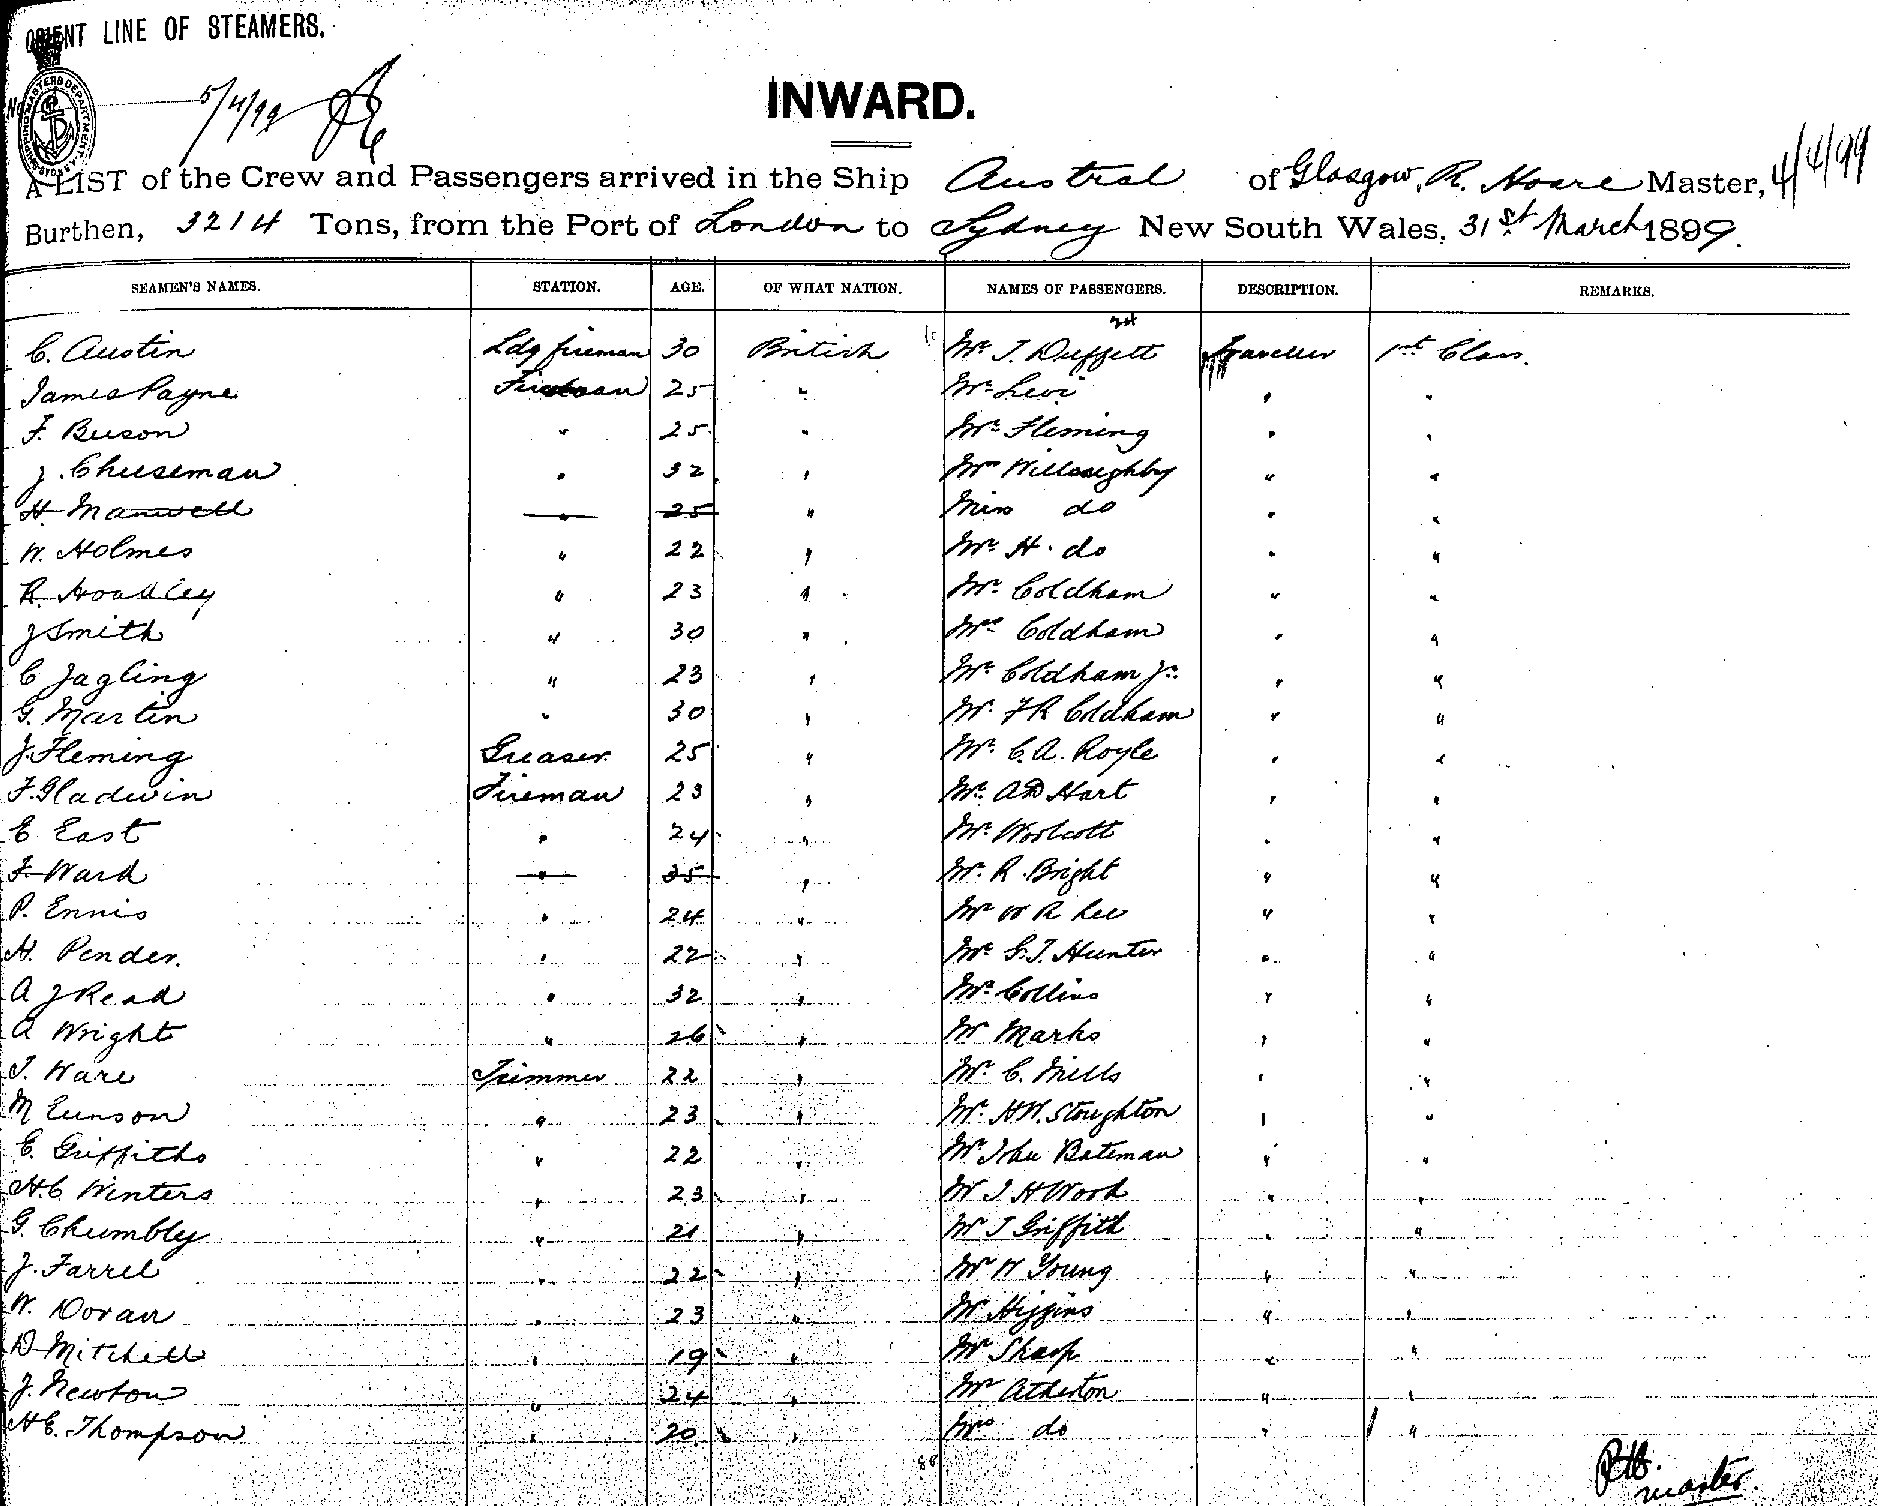 ORIENT LINE OF STEAMERS.
5/4/99
INWARD.
A LIST of the Crew and Passengers arrived in the Ship Austral of Glasgow, R. Hoare Master, 4/4/99
Burthen, 3214 Tons, from the Port of London to Sydney New South Wales, 31st March 1899.
SEAMEN'S NAMES. STATION. AGE. OF WHAT NATION. NAMES OF PASSENGERS. DESCRIPTION. REMARKS.
C. Austin Ldg fireman 30 British Mr. T. Duffett Traveller 1st Class.
James Payne Fireman 25 " Mr. Levi " "
F. Buson " 25 " Mr. Fleming " "
J. Cheeseman " 32 " Mrs Willoughby " "
H. Manwell " 25 " Miss do " "
W. Holmes " 22 " Mr. H. do " "
R. Hoadley " 23 " Mr. Coldham " "
J Smith " 30 " Mrs Coldham " "
C Jagling " 23 " Mr. Coldham Jr. " "
G. Martin " 30 " Mr. F R Coldham " "
J. Fleming Greaser 25 " Mr. C. A. Royle " "
F. Gladwin Fireman 23 " Mr. A D Hart " "
E East " 24 " Mr. Woolcott " "
F. Ward " 35 " Mr. R. Bright " "
P. Ennis " 24 " Mr W R Lee " "
H. Pender. " 22 " Mr G. T. Hunter " "
A J Read " 32 " Mr. Collins " "
A Wright " 26 " Mr Marks " "
T. Ware Trimmer 22 " Mr. C. Mills " "
M Eunson " 23 " Mr. H W. Stoughton " "
E. Griffiths " 22 " Mr. John Bateman " "
H. C. Winters " 23 " Mr J H Wood " "
G. Chumbly " 21 " Mr T Griffith " "
J. Farrel " 22 " Mr H Young " "
W. Doran " 23 " Mr Higgins " "
D Mitchell " 19 " Mr Sharp " "
J. Newton " 24 " Mr Atherton " "
H E. Thompson " 20 " Mrs do " "
Master.